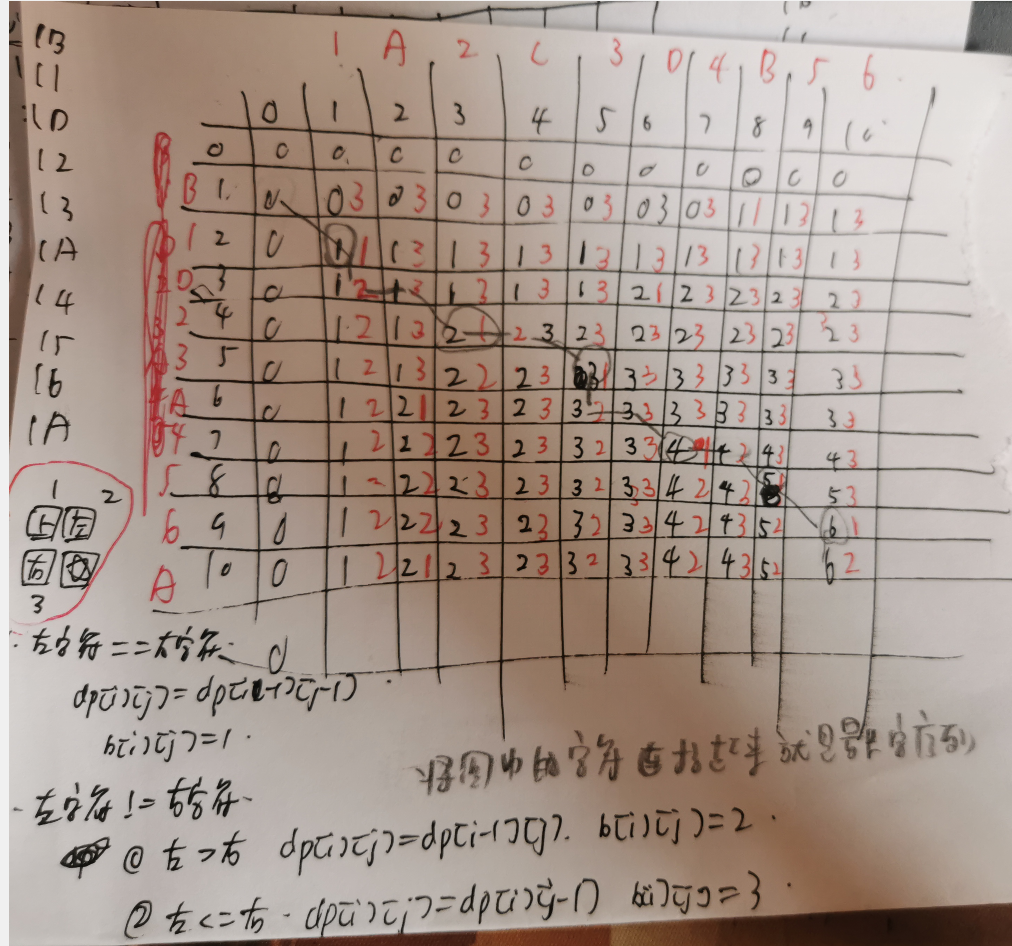 1B
11
1D
12
13
1A
14
15
16
1A
1 A 2 C 3 D 4 B 5 6
0 1 2 3 4 5 6 7 8 9 10
0 0 0 0 0 0 0 0 0 0 0 0
B 1 0 03 03 03 03 03 03 03 11 13 13
1 2 0 11 13 13 13 13 13 13 13 13 13
D 3 0 12 13 13 13 13 21 23 23 23 23
2 4 0 12 13 21 23 23 23 23 23 23 23
3 5 0 12 13 22 23 31 33 33 33 33 33
A 6 0 12 21 23 23 32 33 33 33 33 33
4 7 0 12 22 23 23 32 33 41 43 43 43
5 8 0 1 22 23 23 32 33 42 43 5 53
6 9 0 12 22 23 23 32 33 42 43 52 61
A 10 0 12 21 23 23 32 33 42 43 52 62
0
1 2
上 左
右
3
左字符==右字符
dp[i][j]=dp[i-1][j-1]
b[i][j]=1
将图中的字符连接起来就是最长子序列
左字符!=右字符
左<右 dp[i][j]=dp[i-1][j] b[i][j]=2
② 左>=右 dp[i][j]=dp[i][j-1] b[i][j]=3